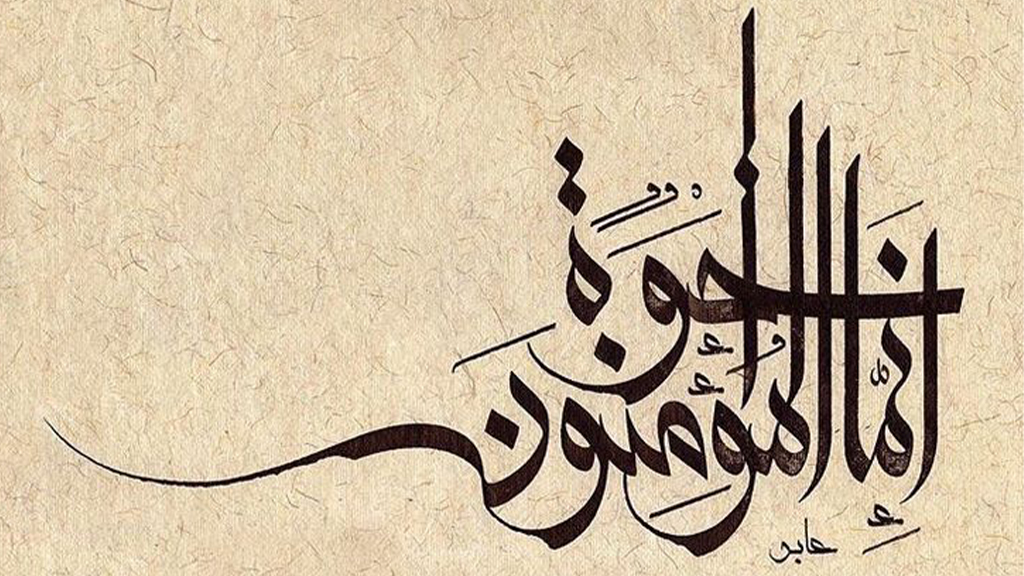 إِنَّمَا الْمُؤْمِنُونَ إِخْوَةٌ
عابد